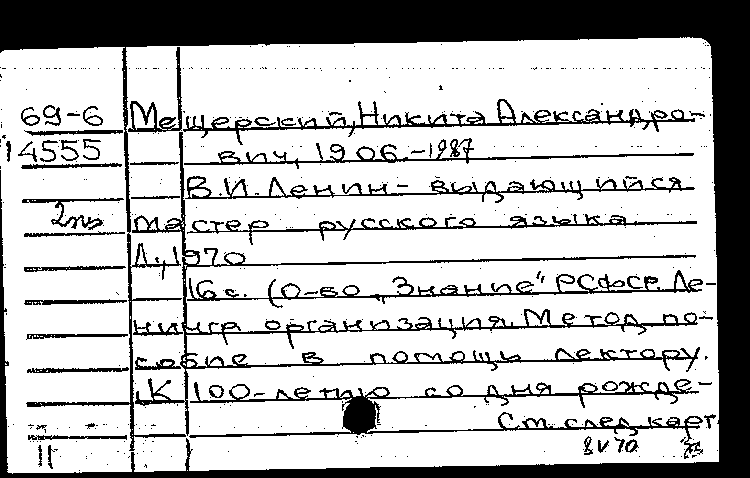 69-6 Мещерский, Никита Александро-
14555 вич, 1906.-1987
В.И.Ленин - выдающийся
мастер русского языка.
Л., 1970
16 с. (О-во „Знание" РСФСР. Ле-
нингр организация. Метод по-
собие в помощь лектору.
К 100-летию со дня рожде-
См. след карт
11 8 V 70